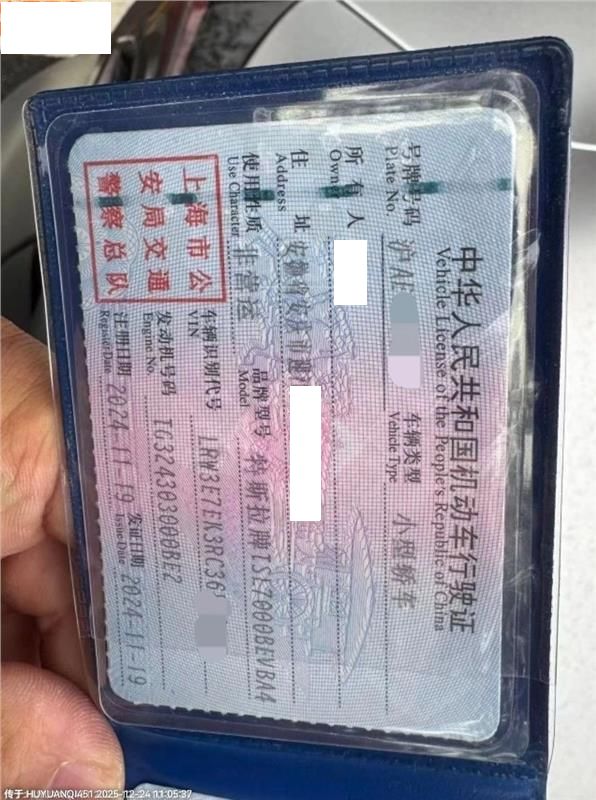 中华人民共和国机动车行驶证
Vehicle License of the People's Republic of China
号牌号码 沪AE 车辆类型 小型轿车
Plate No. Vehicle Type
所有人
Owner
住址 安徽省安庆市迎
Address
使用性质 非营运 品牌型号 特斯拉牌TSL7000BEVBA4
Use Character Model
上海市公
安局交通
警察总队
车辆识别代号 LRW3E7EK3RC36
VIN
发动机号码 TG32430300BE2
Engine No.
注册日期 2024-11-19 发证日期 2024-11-19
Register Date Issue Date
传于:HUYUANQI451 2025-12-24 11:05:37